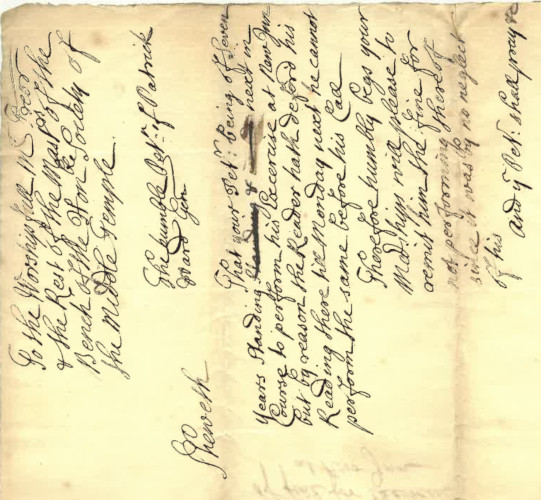 To the Worshipfull Mr Trēor
& the Rest of the Mastrs of the
Bench of the Honble Society of
the Middle Temple
The humble Petn: of Patrick
Ward Gen
Sheweth
That your Petr: being of Seven
years standing & next in
Course to perform his Excercise at New Inn
but by reason the Reader hath deferd his
Reading there till Monday next he cannot
perform the same before his Call
Therefore humbly begs your
Mastships will please to
remitt him the fine for
not performing thereof
since it was by no neglect
of his
And yr Petr: shall pray &c